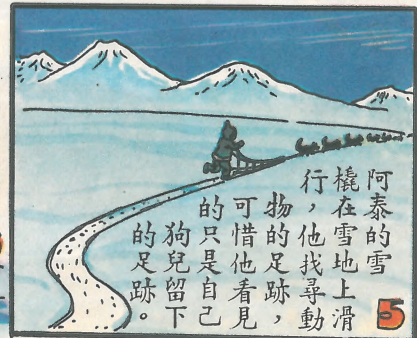 阿泰的雪
橇在雪地上滑
行，他找尋動
物的足跡，
可惜他看見
的只是自己
狗兒留下
的足跡。
5